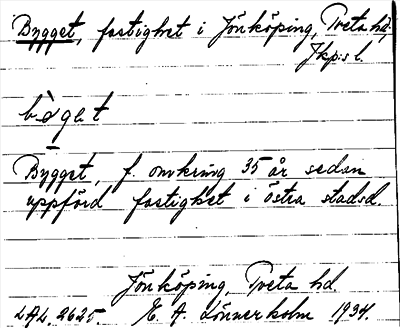 Bygget, fastighet i Jönköping, Tveta hd,
Jkp:s l.
bỳgət
Bygget, f. omkring 35 år sedan
uppförd fastighet i östra stadsd.
Jönköping, Tveta hd
LAL. 2625. E. A. Lönnerholm 1934.